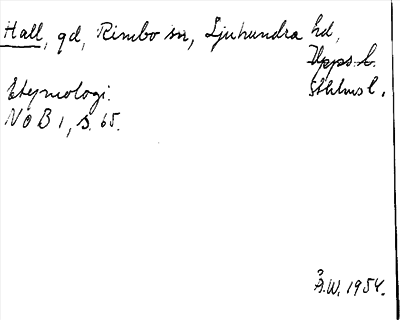 Hall, gd, Rimbo sn, Sjuhundra hd,
Upps. l.
Etymologi. Sthlms l.
NoB 1, s. 65.
Å.W. 1954.